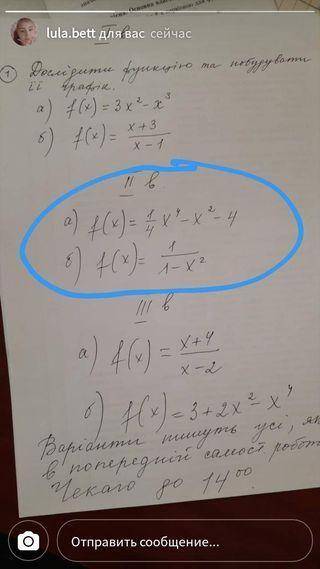 lula.bett для вас сейчас
II в
1 Дослідити функцію та побудувати
її графік.
а) f(x) = 3x² - x³
б) f(x) = x+3 / x-1
II в
а) f(x) = 1/4 x⁴ - x² - 4
б) f(x) = 1 / 1-x²
III в
а) f(x) = x+4 / x-2
б) f(x) = 3+2x²-x⁴
Варіанти пишуть усі, як
в попередній самост. робот
Чекаю до 14⁰⁰.
Отправить сообщение...